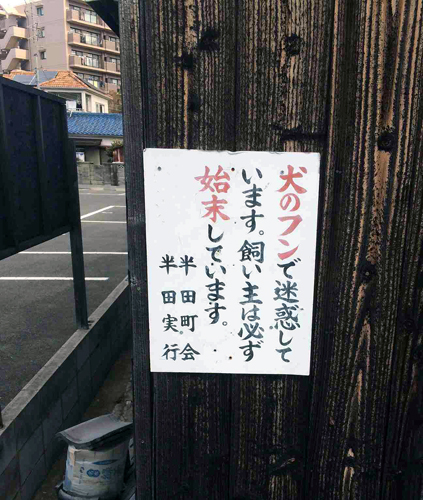 犬のフンで迷惑して
います。飼い主は必ず
始末しています。
半田町会
半田実行